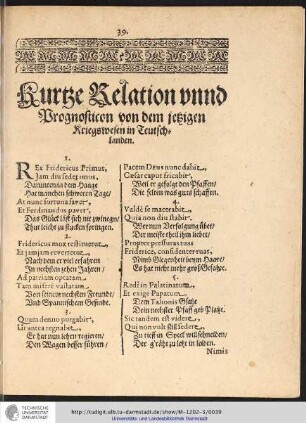 39.
Kurtze Relation vnnd
Prognosticon von dem jetzigen
Kriegswesen in Teutsch-
landen.
1.
REx Fridericus Primus,
Jam diu sedet imus,
Darumb
Hat manchen schweren Tage/
At nunc fortuna favet,
Et Ferdinandus pavet,
Das Glück läst sich nit zwingen/
Thut leicht zu stucken springen.
2.
Fridericus mox restituetur,
Et jam jam evectetur,
Nach dem er viel erfahren
In nechsten zehen Jahren/
Ad patriam optatam,
Tam miserè vastatam
Von seinen nechsten Freunde/
Vnd Spannischem Gesinde.
3.
Quam denuo purgabit,
Ut antea regnabit,
Er hat nun lehrn regieren/
Den Wagen besser führen/
Pacem Deus nunc dabit,
Cæsar caput fricabit,
Weil er gefolgt den Pfaffen/
Die selten was guts schaffen.
4.
Valdè se macerabit,
Quia non diu stabit,
Wer nun Verfolgung übet/
Der meiste theil ihm liebet/
Propter pressuras tuas
Friderice, confidenter ruas,
Nimb Siegenheit beym Haar/
Es hat nicht mehr groß Gefahre.
5.
Redi in Palatinatum,
Et exige Papatum,
Dem Talionis Gsatz
Dein nechster Pfaff geb Platz.
Sic tandem est videre,
Qui non vult still sedere,
Zu tieff in Speel will schneiden/
Der
Nimis
TECHNISCHE
UNIVERSITÄT
DARMSTADT
http://tudigit.ulb.tu-darmstadt.de/show/M-1202-3/0039
Universitäts- und Landesbibliothek Darmstadt